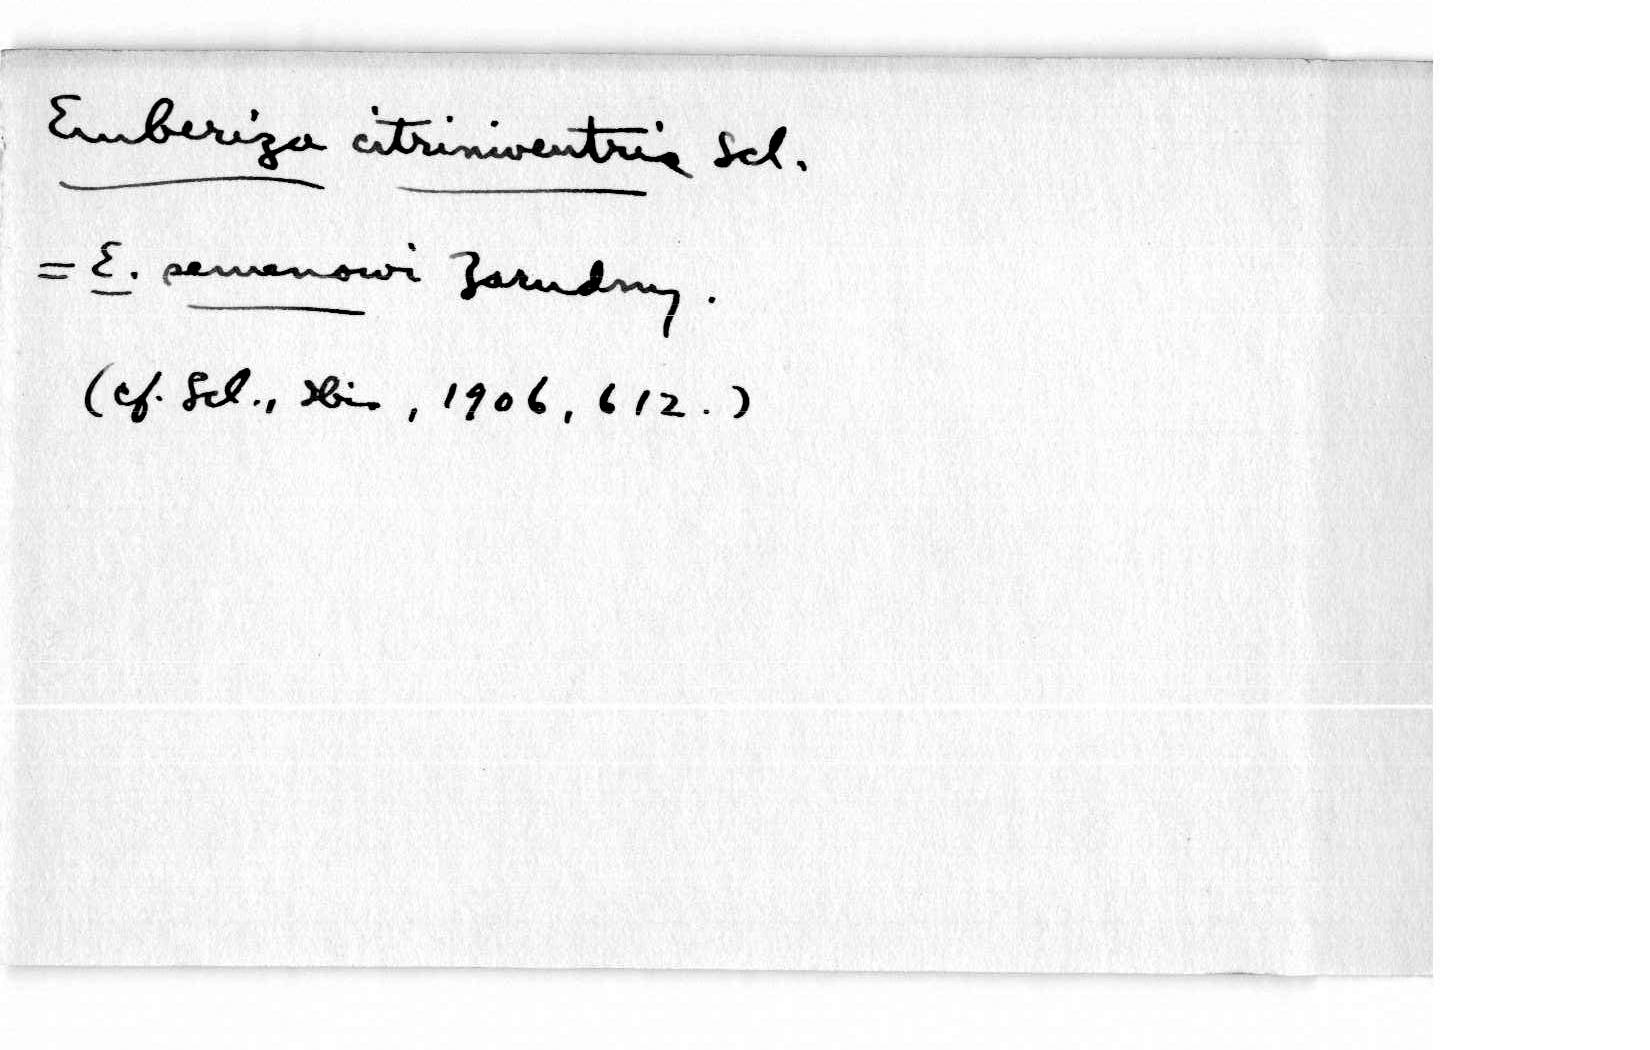 Emberiza citriniventris Scl.
= E. semenowi Zarudny.
(cf. Scl., Ibis, 1906, 612.)